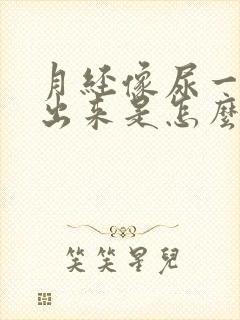 月经像尿一
出来是怎麼
笑笑星兒